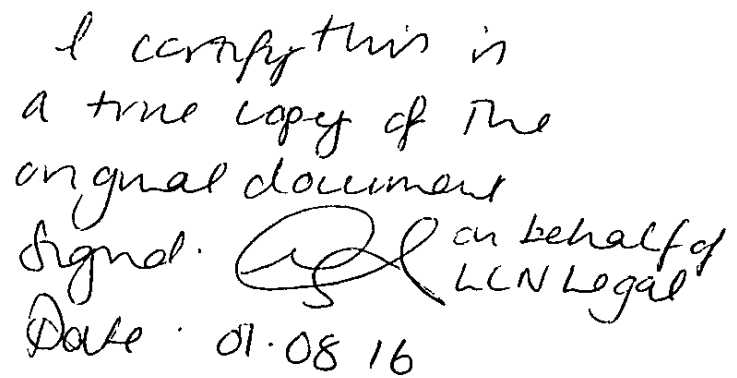 I certify this is
a true copy of the
original document
Signed. on behalf of
LCN Legal
Date. 01.08 16